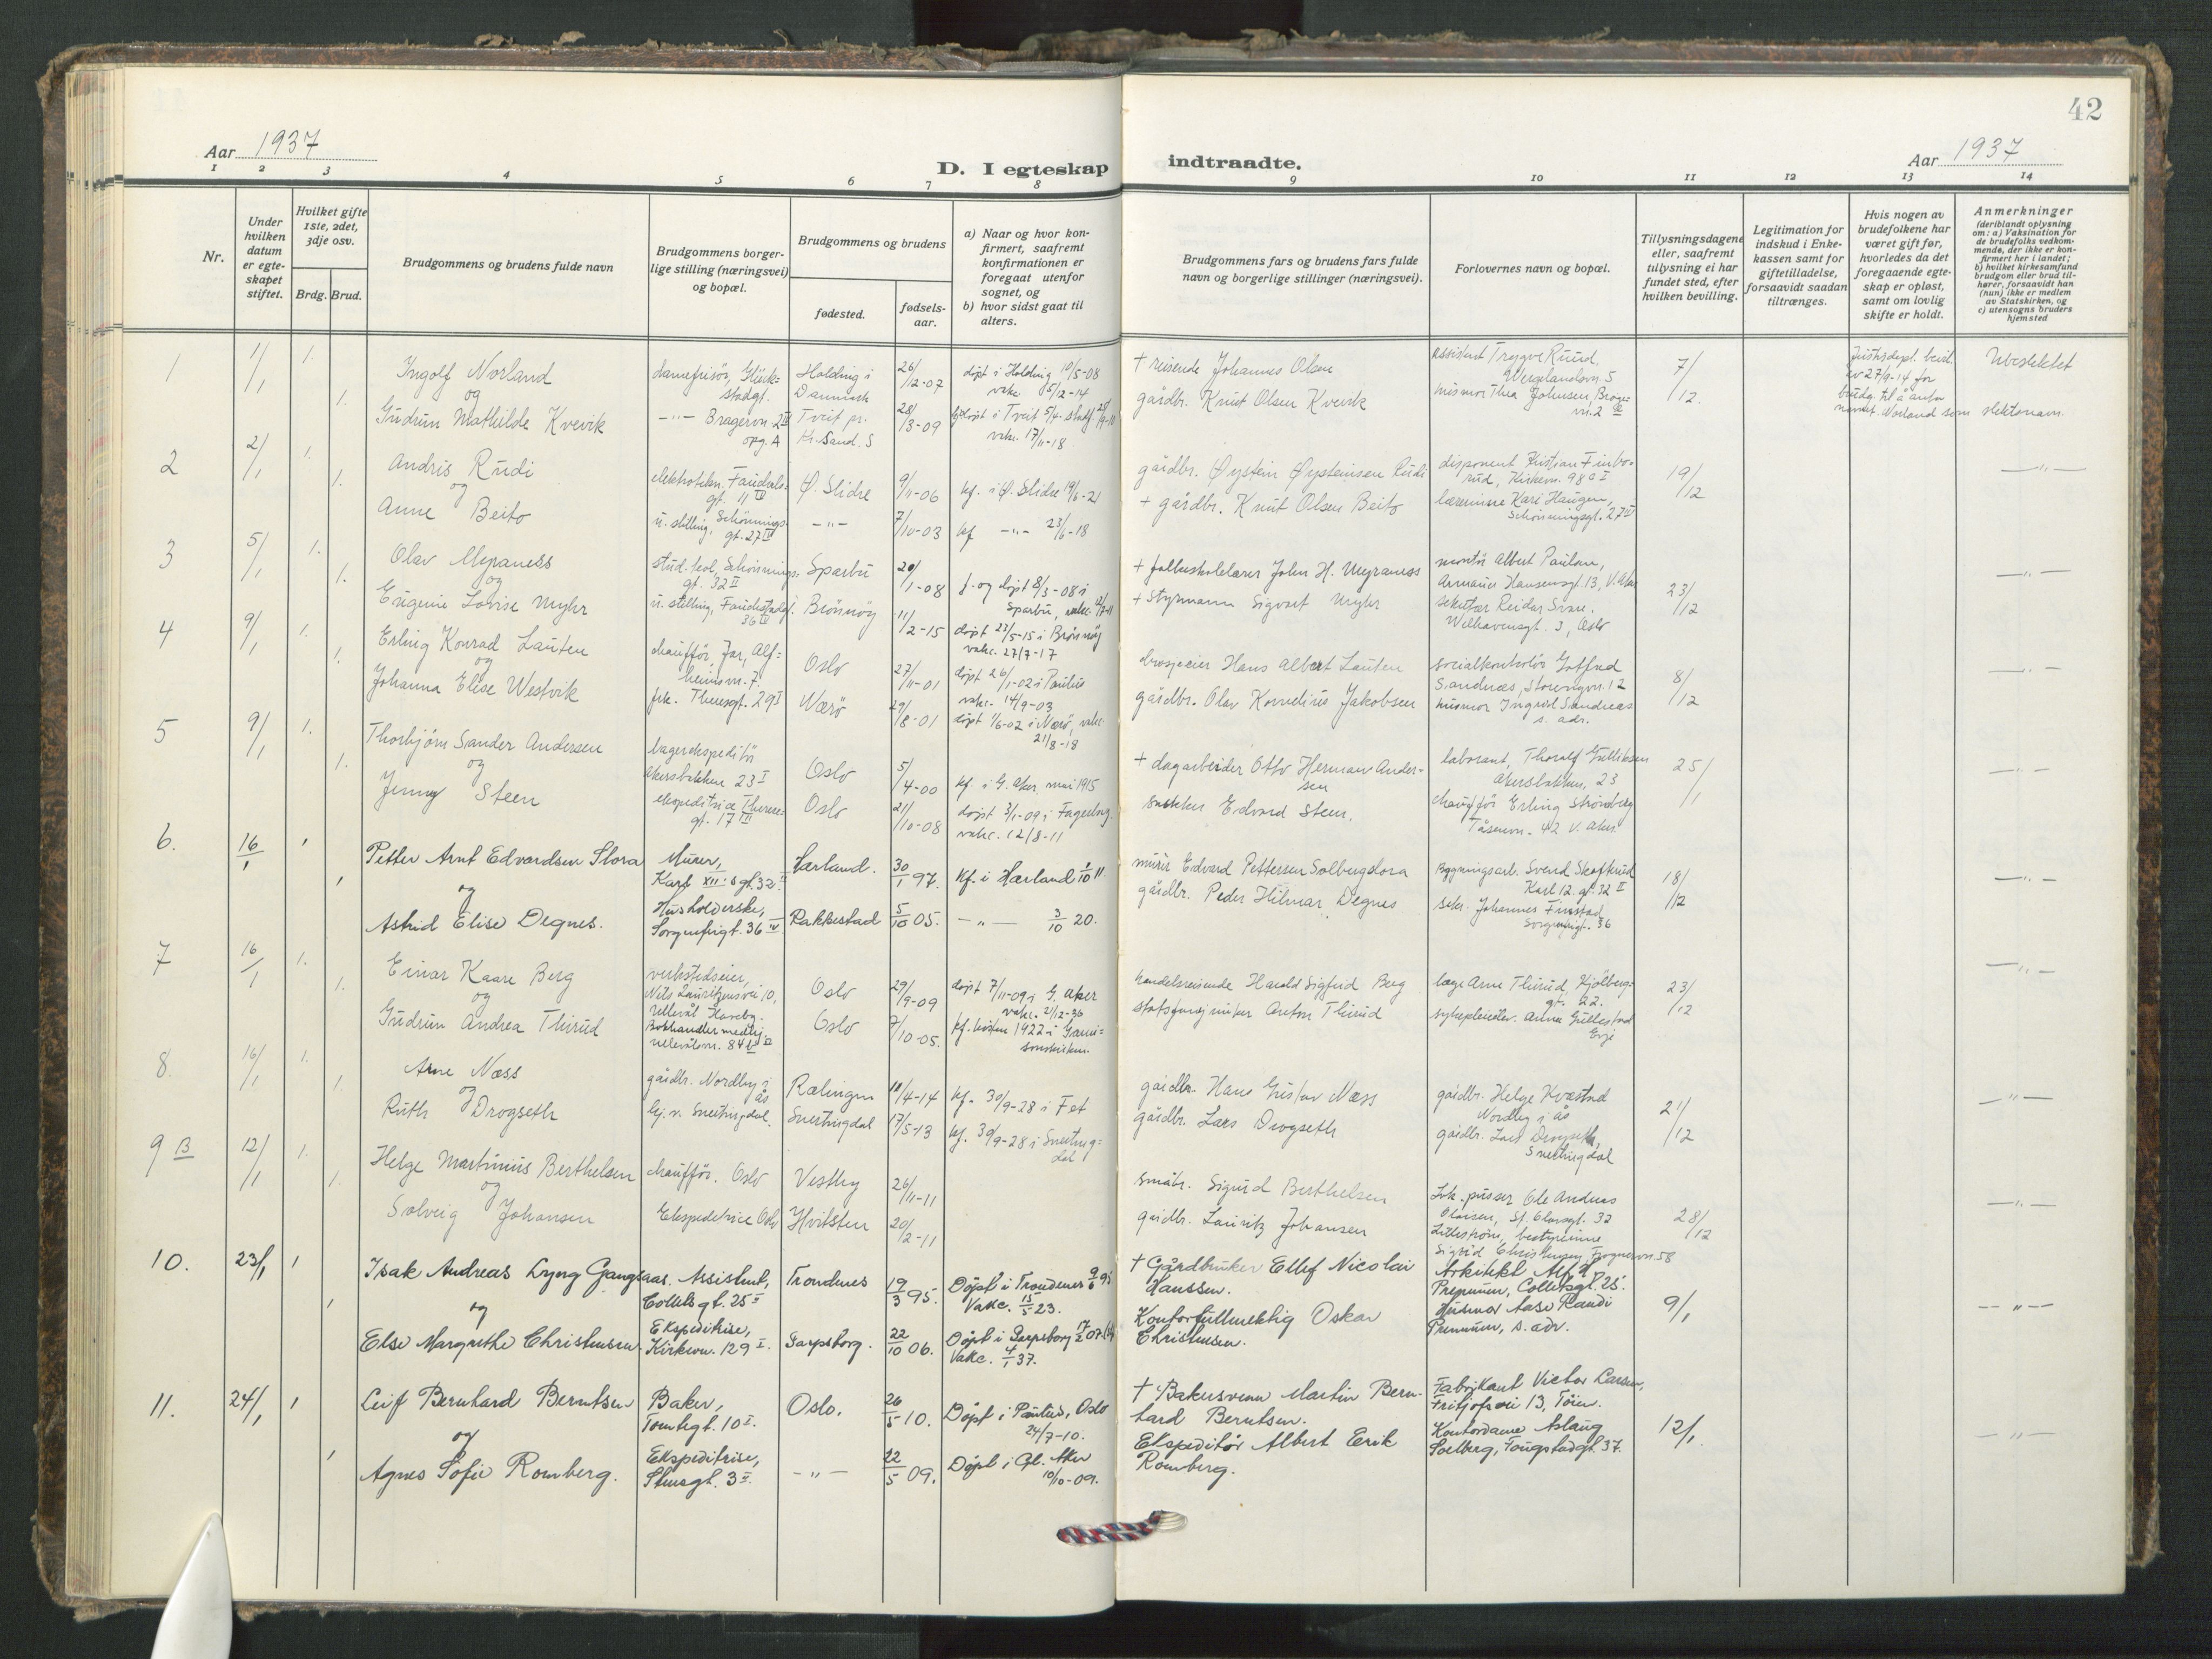 42
Aar 1937
D. I egteskap indtraadte.
Aar 1937
1 2 3 4 5 6 7 8 9 10 11 12 13 14
Nr.
Under hvilken datum er egteskapet stiftet.
Hvilket gifte 1ste, 2det, 3dje osv.
Brdg. Brud.
Brudgommens og brudens fulde navn
Brudgommens borgerlige stilling (næringsvei) og bopæl.
Brudgommens og brudens
fødested.
fødselsaar.
a) Naar og hvor konfirmert, saafremt konfirmationen er foregaat utenfor sognet, og
b) hvor sidst gaat til alters.
Brudgommens fars og brudens fars fulde navn og borgerlige stillinger (næringsvei).
Forlovernes navn og bopæl.
Tillysningsdagene eller, saafremt tillysning ei har fundet sted, efter hvilken bevilling.
Legitimation for indskud i Enkekassen samt for giftetilladelse, forsaavidt saadan tiltrænges.
Hvis nogen av brudefolkene har været gift før, hvorledes da det foregaaende egteskap er opløst, samt om lovlig skifte er holdt.
Anmerkninger
(deriblandt oplysning om: a) Vaksination for de brudefolks vedkommende, der ikke er konfirmert her i landet; b) hvilket kirkesamfund brudgom eller brud tilhører, forsaavidt han (hun) ikke er medlem av Statskirken, og c) utensogns bruders hjemsted
1 1/1 1. Ingolf Norland damefrisör, Holding i Danmark 26/12-07 döpt i Holding 10/5-08 vakc. 5/2-14
+ reisende Johannes Olsen Assistent Trygve Ruud, 7/12. Ubeslektet
og
1. Gudrun Mathilde Kvevik -"- Tveit pr. Kr.sand. S 28/3-09 vakc. 17/11-18
gårdbr. Knut Olsen Kvevik husmor Thea Johnsen,
2 2/1 1. Andris Rudi Ø. Slidre 9/11-06 kf. i Ø. Slidre 19/6-21
gårdbr. Øystein Øysteinsen Rudi disponent Kristian 19/12 -"-
og
1. Anne Beito u. stilling, Schönningsgt. 27 IV -"- 7/10-03 kf -"- 23/6-18
+ gårdbr. Knut Olsen Beito lærerinne Kari Haugen, Schönningsgt. 27 IV
3 5/1 1. Olav stud. teol, Schönningsgt. 32 II Sparbu 20/1-08 f. og döpt 8/3-08 i Sparbu,
+ folkeskolelærer John H. montör Albert Paulsen, Armauer Hansensgt. 13, V. Aker 23/12 -"-
og
1. Eugenie Lovise Myhr u. stilling, Brönnöy 11/2-15 döpt 23/5-15 i Brönnöy vakc. 27/7-17
+ Styrmann Sigvart Myhr sekretær Reidar Welhavensgt. 3, Oslo
4 9/1 1. Erling Konrad Lauten chauffför, Jar, Oslo 27/11-01 döpt 26/1-02 i Paulus vakc. 14/9-03
Hans Albert Lauten socialkontrolör 8/12 -"-
og
1. Johanna Elise Westvik frk. Theresgt. 29 I Værö 29/8-01 döpt 1/6-02 i Værö, vakc. 21/8-18
gårdbr. Olav Kornelius Jakobsen husmor Ingrid Sandnæs s. adr.
5 9/1 1. Thorbjörn Sander Andersen lagerekspeditör Akersbakken 23 I Oslo 5/4-00 kf. i G. Aker mai 1915
+ dagarbeider Otto Herman Andersen laborant, Thoralf Gulliksen Akersbakken, 23 25/1 -"-
og
1. Jenny Steen ekspeditrice Theresegt. 17 III Oslo 21/10-08 döpt 3/1-09 i Fagerborg. vakc. 12/8-11
snekker Edvard Steen. chauffför Erling Strömberg Tåsenvn. 42 V. Aker
6. 16/1 1 Petter Arnt Edvardsen Slora Murer, Karl XII:s gt. 32 II Hærland. 30/1 97. Kf. i Hærland 1/10 11.
murer Edvard Pettersen Solbergslora Bygningsarb. Svend Karl 12. gt. 32 II 18/12 -"-
og
1 Astrid Elise Degnes. Husholderske, Sorgenfrigt. 36 IV Rakkestad 5/10 05. -"- 3/10 20.
gårdbr. Peder Hilmar Degnes Johannes Finstad Sorgenfrigt. 36
7 16/1 1. Einar Kaare Berg verkstedseier, Nils Lauritzensvei 10, Oslo 29/9-09 döpt 7/11-09 i G. Aker vakc. 21/12-36
handelsreisende Harald Sigfrid Berg læge Arne Thirud Kjölberggt. 22. 23/12 -"-
og
1. Gudrun Andrea Thirud Ullevålsvn. Oslo 7/10-05. kf. hösten 1922 i Garnisonskirken.
Anton Thirud Anna Gullestad Evje
8. 16/1 1. Arne Næss gårdbr. Nordby i Ås Rælingen 18/4-14 kf. 30/9-28 i Fet
gårdbr. Hans Gustav Næss gårdbr. Helge Kvæstad Nordby i Ås 21/12 -"-
og
1. Ruth Drogseth Snertingdal Snertingdal 17/5-13 kf. 30/9-28 i Snertingdal
gårdbr. Lars Drogseth gårdbr. Lars Drogseth, Snertingdal
9 B 12/1 1. Helge Martinius Berthelsen chauffför. Oslo Vestby 26/11-11
småbr. Sigurd Berthelsen Lok. pusser Ole Andreas Olaisen, St. Olavsgt. 32 Lilleström, 28/12 -"-
og
1. Solveig Johansen Ekspeditrice Oslo Hvitsten 20/2-11
gårdbr. Lauritz Johansen bestyrerinne Sigrid Christensen, Frognervn. 58
10. 23/1 1 Isak Andreas Lyng Gangsaas. Assistent, Colletsgt. 25 II Trondenes 19/3 95. Döpt i Trondenes 9/6 95 Vakc. 15/5 23.
+ Gårdbruker Ellef Nicolai Hanssen. Arkitekt Alf H. Colletsgt. 25. 9/1 -"-
og
1 Else Margrethe Christensen. Ekspeditrise, Kirkevn. 129 I. Sarpsborg. 22/10 06. Döpt i Sarpsborg Vakc. 4/1 37.
Kontorfullmektig Oskar Christensen. Husmor Aase Randi s. adr.
11. 24/1 1 Leif Bernhard Berntsen Baker, Tomtegt. 10 I. Oslo. 26/5 10. Döpt i Paulus, Oslo 24/7-10.
+ Bakersvenn Martin Bernhard Berntsen. Fabrikant Victor Larsen, Fritjofsvei 13, Töien. 12/1 -"-
og
1 Agnes Sofie Romberg. Ekspeditrise, Stensgt. 3 II. -"- 22/5 09. Döpt i Gl. Aker 10/10-09.
Ekspeditör Albert Erik Romberg. Kontordame Aslaug Solberg, Fougstadgt. 37.